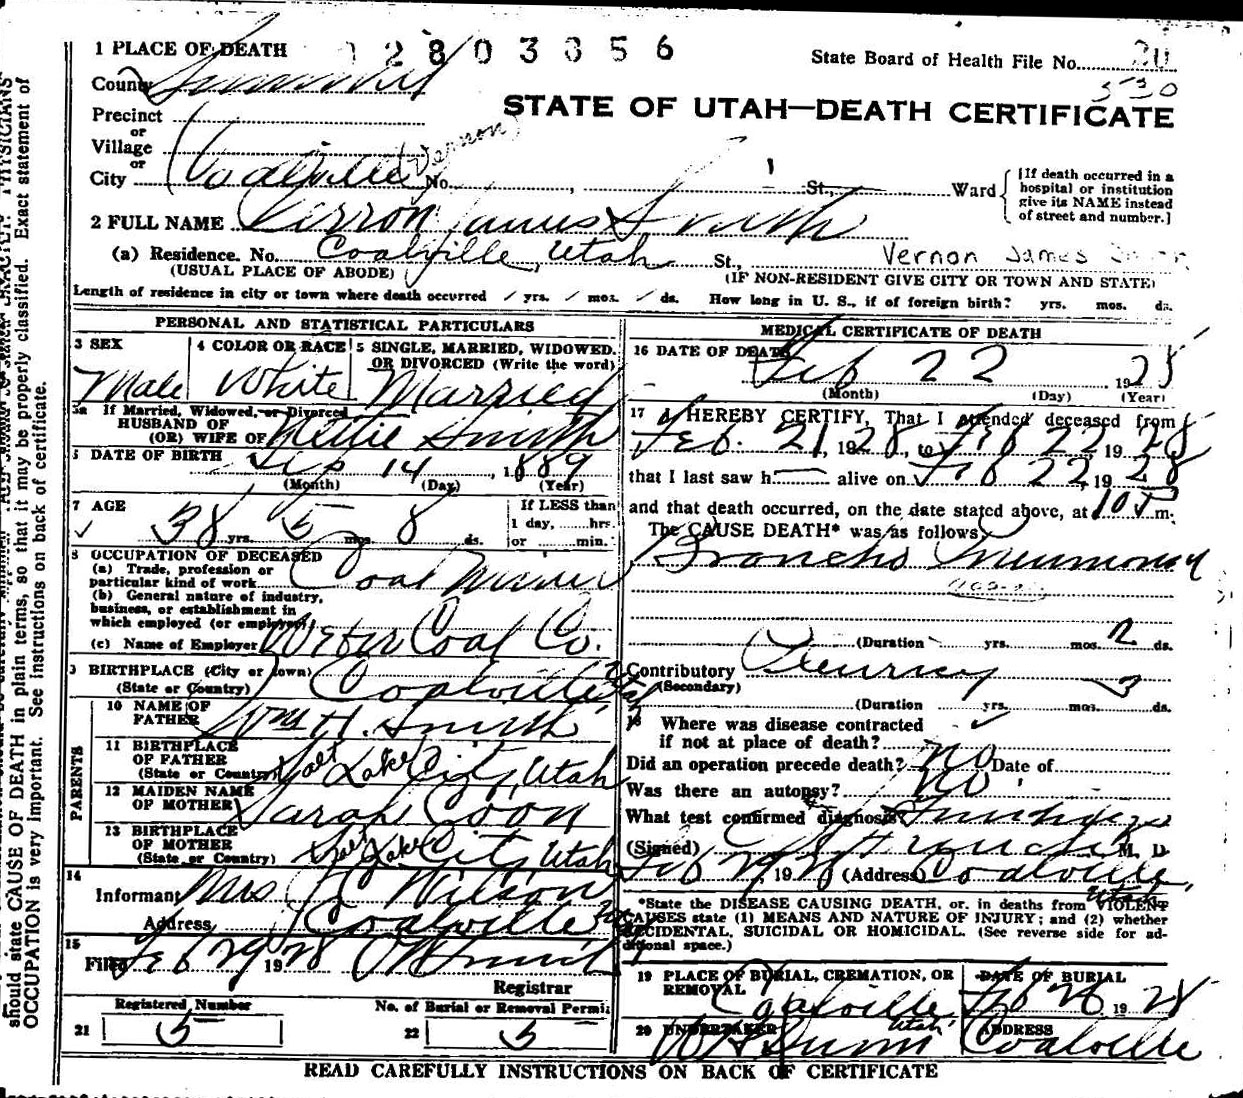 1 PLACE OF DEATH 02803356 State Board of Health File No. 20
530
County Summit
STATE OF UTAH—DEATH CERTIFICATE
Precinct
or
Village
or (Vernon)
City Coalville No. St., Ward
[If death occurred in a
hospital or institution
give its NAME instead
of street and number.]
2 FULL NAME Verron James Smith
(a) Residence. No. Coalville, Utah St., Vernon James
(USUAL PLACE OF ABODE) (IF NON-RESIDENT GIVE CITY OR TOWN AND STATE)
Length of residence in city or town where death occurred / yrs. / mos. / ds. How long in U. S., if of foreign birth? yrs. mos. ds.
PERSONAL AND STATISTICAL PARTICULARS
3 SEX 4 COLOR OR RACE 5 SINGLE, MARRIED, WIDOWED.
OR DIVORCED (Write the word)
Male White Married
5a If Married, Widowed, or Divorced
HUSBAND OF
(OR) WIFE OF Nettie Smith
DATE OF BIRTH Sep 14, 1889
(Month) (Day) (Year)
7 AGE If LESS than
1 day, hrs.
38 yrs. 5 mos. 8 ds. or min.
8 OCCUPATION OF DECEASED
(a) Trade, profession or
particular kind of work Coal Miner
(b) General nature of industry,
business, or establishment in
which employed (or employer)
(c) Name of Employer Weber Coal Co.
9 BIRTHPLACE (City or Town) Coalville, Utah
(State or Country)
PARENTS
10 NAME OF
FATHER Wm H. Smith
11 BIRTHPLACE
OF FATHER
(State or Country) Salt Lake City, Utah
12 MAIDEN NAME
OF MOTHER Sarah Coon
13 BIRTHPLACE
OF MOTHER
(State or Country) Salt Lake City, Utah
14
Informant Mrs Wilson
Address Coalville
15
Filed Feb 29 1928
Registrar
Registered Number No. of Burial or Removal Permit
21 5 22 5
MEDICAL CERTIFICATE OF DEATH
16 DATE OF DEATH
Feb 22, 1928
(Month) (Day) (Year)
17 I HEREBY CERTIFY, That I attended deceased from
Feb. 21, 1928, to Feb 22 1928
that I last saw h alive on Feb 22, 1928
and that death occurred, on the date stated above, at 10 m.
The CAUSE DEATH* was as follows:
Broncho Pneumonia
(Duration yrs. mos. 2 ds.
Contributory Pleurisy
(Secondary) 3
(Duration yrs. mos. ds.
18 Where was disease contracted
if not at place of death?
Did an operation precede death? no Date of
Was there an autopsy? no
What test confirmed diagnosis?
(Signed) M. D.
Feb 29, 1928 (Address) Coalville, Utah
*State the DISEASE CAUSING DEATH, or. in deaths from VIOLENT
CAUSES state (1) MEANS AND NATURE OF INJURY; and (2) whether
ACCIDENTAL, SUICIDAL OR HOMICIDAL. (See reverse side for ad-
ditional space.)
19 PLACE OF BURIAL, CREMATION, OR
REMOVAL DATE OF BURIAL
Coalville Utah Feb 26 1928
20 UNDERTAKER ADDRESS
Coalville
READ CAREFULLY INSTRUCTIONS ON BACK OF CERTIFICATE
should state CAUSE OF DEATH in plain terms, so that it may be properly classified. Exact statement of
OCCUPATION is very important. See instructions on back of certificate.